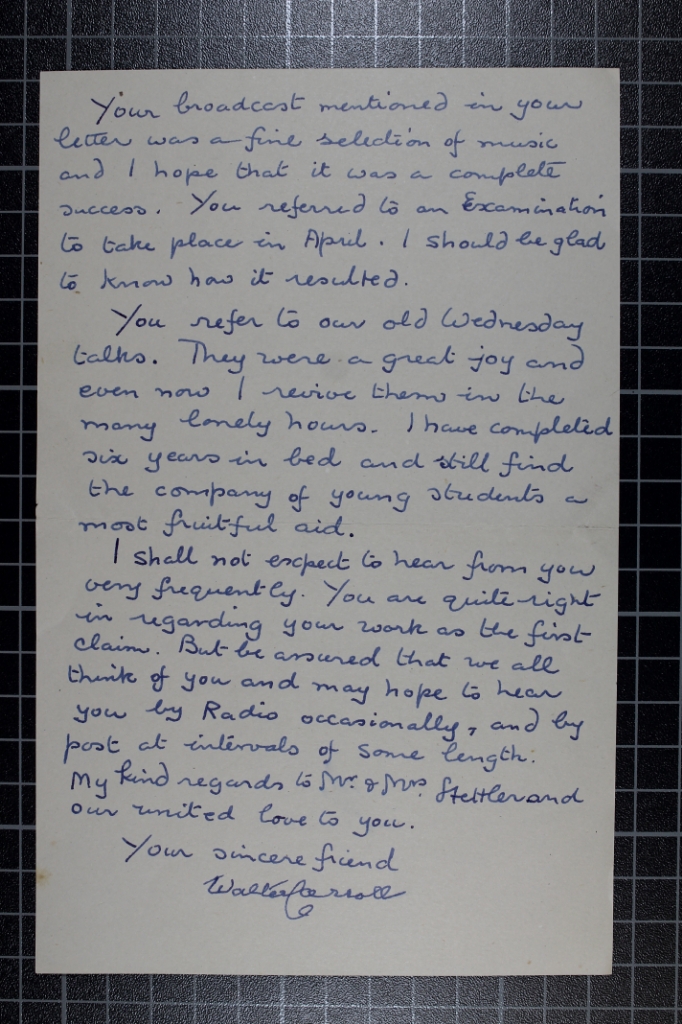 Your broadcast mentioned in your
letter was a fine selection of music
and I hope that it was a complete
success. You referred to an Examination
to take place in April. I should be glad
to know how it resulted.
You refer to our old Wednesday
talks. They were a great joy and
even now I revive them in the
many lonely hours. I have completed
six years in bed and still find
the company of young students a
most fruitful aid.
I shall not expect to hear from you
very frequently. You are quite right
in regarding your work as the first
claim. But be assured that we all
think of you and may hope to hear
you by Radio occasionally, and by
post at intervals of some length.
My kind regards to Mr. & Mrs. Stettler and
our united love to you.
Your sincere friend
Walter Carroll